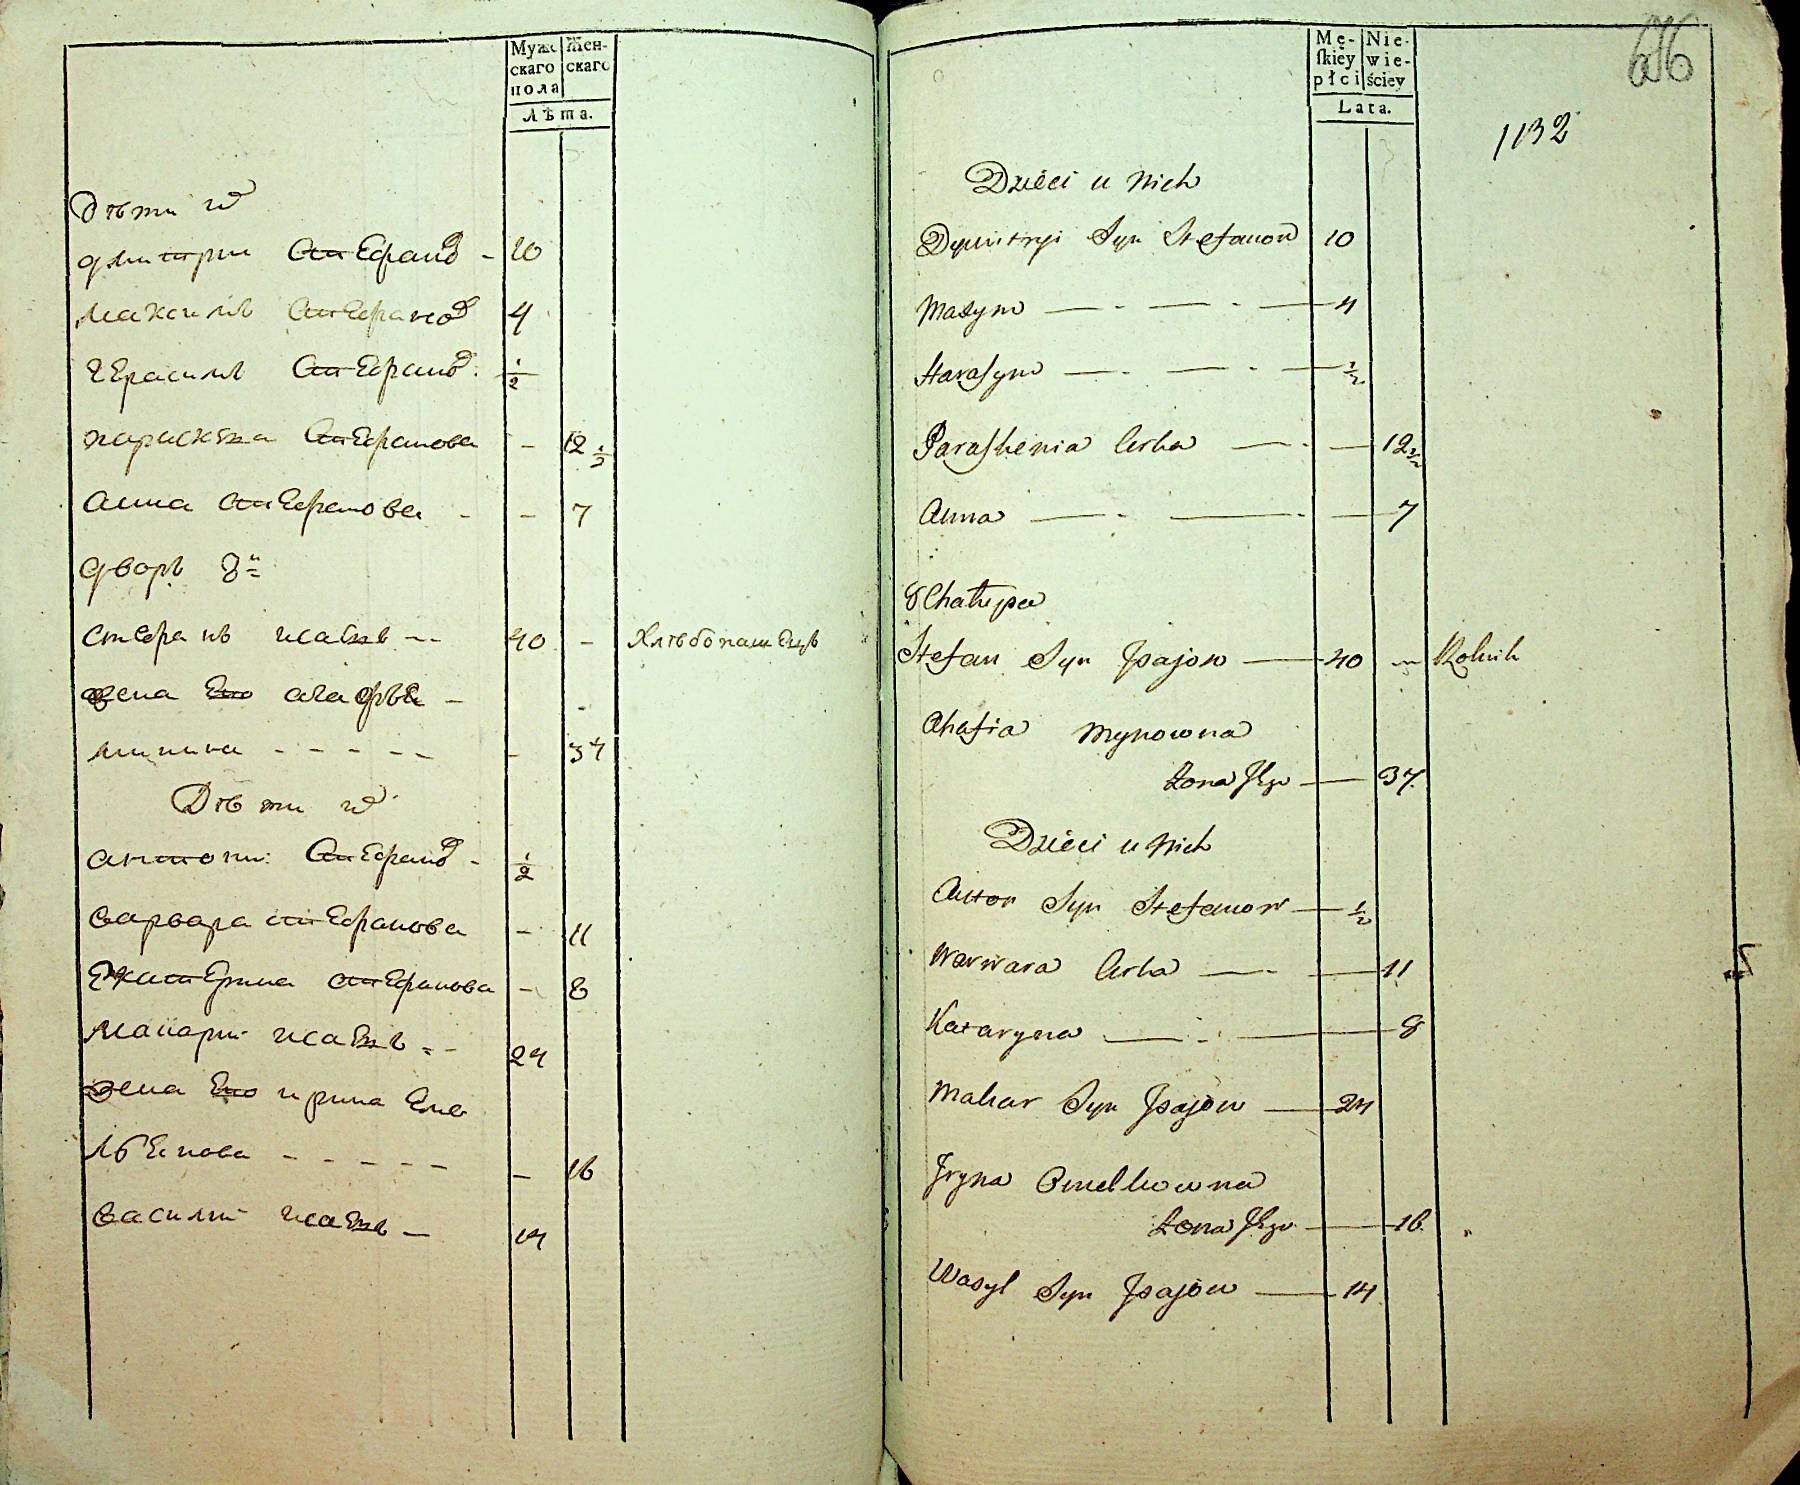 Муж-
скаго
пола
Жен-
скаго
Лѣта.
Дѣти их
дмитри Стефанов - 10
максимъ Стефанов 4
герасимъ Стефанов. 1/2
параскева Стефанова - 12 1/2
анна Стефанова - - 7
дворъ 8й
стефанъ исаевъ -- 40 - Хлѣбопашецъ
жена Его агафья -
минина - - - - - - 37
Дѣти их
антони: Стефанов - 1/2
варвара стефанова - 11
Екатерина стефанова - 8
макарий исаевъ - - 24
жена Его ирина Еме
льянова - - - - - - 16
василий исаевъ - 14
Mę-
ſkiéy
płci
Nie-
wie-
ściey
Lata.
696
1132
Dzieci u Nich
Dymitryi Syn Stefanow 10
Maxym — - — - — 4
Harasym — - — - — 1/2
Paraskewia Corka — - — 12 1/2
Anna — - — - — 7
8 Chałupa
Stefan Syn Jsajow — 40 — Rolnik
Ahafia Mynowna
Żona Jego — 37
Dzieci u Nich
Anton Syn Stefanow — 1/2
Warwara Corka — - — 11
Kataryna — - — 8
Makar Syn Jsajow — 24
Jryna Omelkowna
Żona Jego — 16
Wasyl Syn Jsajow — 14